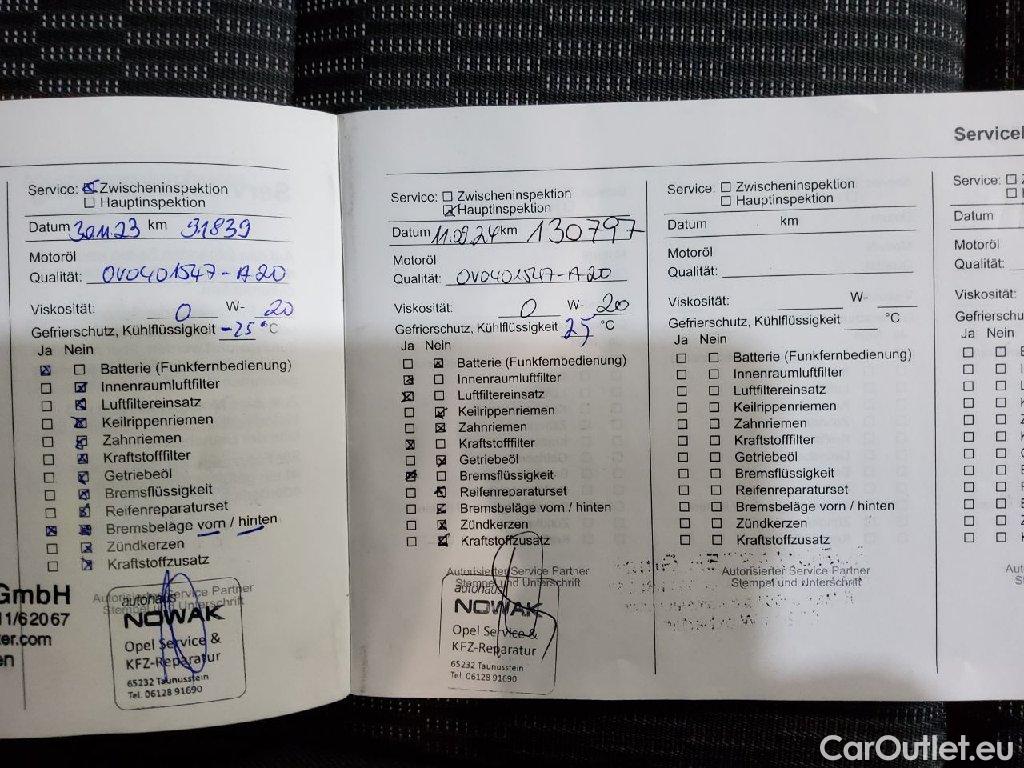 Service
Service: ☒ Zwischeninspektion
☐ Hauptinspektion
Datum 30.11.23 km 91839
Motoröl
Qualität: OV0401547-A20
Viskosität: 0 W- 20
Gefrierschutz, Kühlflüssigkeit -25 °C
Ja Nein
☒ ☐ Batterie (Funkfernbedienung)
☐ ☒ Innenraumluftfilter
☐ ☒ Luftfiltereinsatz
☐ ☒ Keilrippenriemen
☐ ☒ Zahnriemen
☐ ☒ Kraftstofffilter
☐ ☒ Getriebeöl
☐ ☒ Bremsflüssigkeit
☐ ☒ Reifenreparaturset
☒ ☒ Bremsbeläge vorn / hinten
☐ ☒ Zündkerzen
☐ ☒ Kraftstoffzusatz
Autorisierter Service Partner
Stempel und Unterschrift
autohaus
NOWAK
Opel Service &
KFZ-Reparatur
65232 Taunusstein
Tel. 06128 91690
GmbH
11/62067
ter.com
en
Service: ☐ Zwischeninspektion
☒ Hauptinspektion
Datum 11.09.24 km 130797
Motoröl
Qualität: OV0401547-A20
Viskosität: 0 W- 20
Gefrierschutz, Kühlflüssigkeit 25 °C
Ja Nein
☐ ☒ Batterie (Funkfernbedienung)
☒ ☐ Innenraumluftfilter
☒ ☐ Luftfiltereinsatz
☐ ☒ Keilrippenriemen
☐ ☒ Zahnriemen
☒ ☐ Kraftstofffilter
☐ ☒ Getriebeöl
☒ ☐ Bremsflüssigkeit
☐ ☒ Reifenreparaturset
☐ ☒ Bremsbeläge vorn / hinten
☐ ☒ Zündkerzen
☐ ☒ Kraftstoffzusatz
Autorisierter Service Partner
Stempel und Unterschrift
autohaus
NOWAK
Opel Service &
KFZ-Reparatur
65232 Taunusstein
Tel. 06128 91690
Service: ☐ Zwischeninspektion
☐ Hauptinspektion
Datum km
Motoröl
Qualität:
Viskosität: W-
Gefrierschutz, Kühlflüssigkeit °C
Ja Nein
☐ ☐ Batterie (Funkfernbedienung)
☐ ☐ Innenraumluftfilter
☐ ☐ Luftfiltereinsatz
☐ ☐ Keilrippenriemen
☐ ☐ Zahnriemen
☐ ☐ Kraftstofffilter
☐ ☐ Getriebeöl
☐ ☐ Bremsflüssigkeit
☐ ☐ Reifenreparaturset
☐ ☐ Bremsbeläge vorn / hinten
☐ ☐ Zündkerzen
☐ ☐ Kraftstoffzusatz
Autorisierter Service Partner
Stempel und Unterschrift
Service: ☐
☐
Datum
Motoröl
Qualität:
Viskosität:
Gefrierschu
Ja Nein
CarOutlet.eu